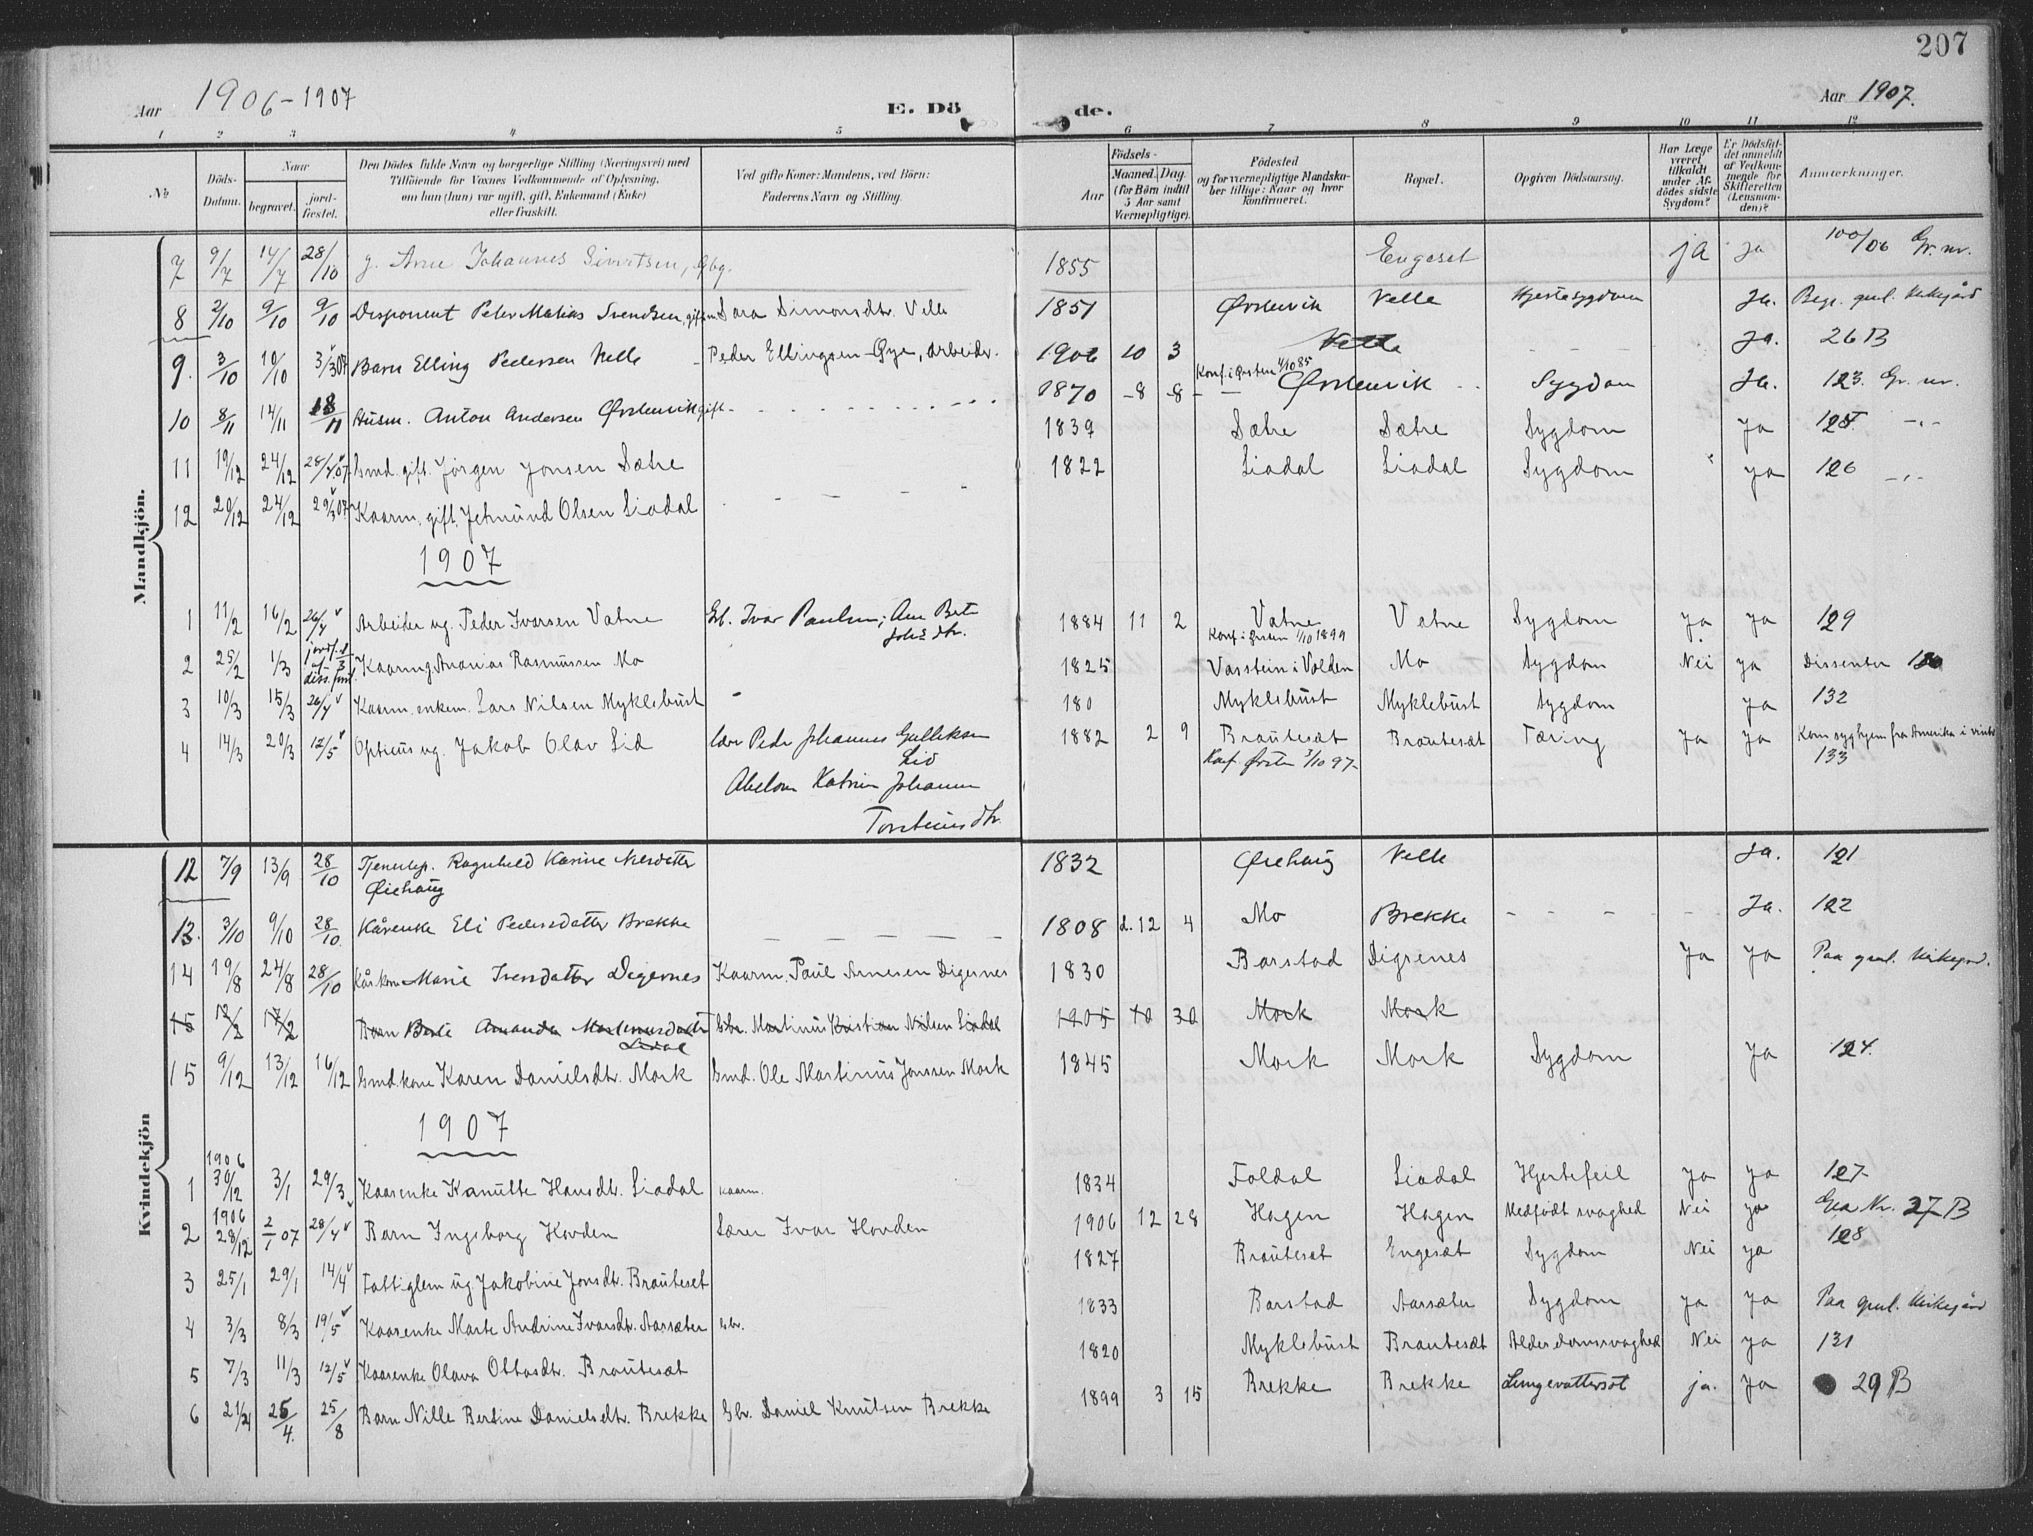 207
Aar 1906-1907 E. Dö de. Aar 1907.
1 2 3 4 5 6 7 8 9 10 11 12
No
Döds-
Datum.
Naar
begravet.
jord-
fæstet.
Den Dödes fulde Navn og borgerlige Stilling (Næringsvei) med
Tilföiende for Voxnes Vedkommende af Oplysning,
om han (hun) var ugift, gift, Enkemand (Enke)
eller fraskilt.
Ved gifte Koner: Mandens, ved Börn:
Faderens Navn og Stilling.
Födsels-
Aar
Maaned. Dag.
(for Börn indtil
5 Aar samt
Værnepligtige).
Födested
og for værnepligtige Mandska-
ber tillige: Naar og hvor
konfirmeret.
Bopæl.
Opgiven Dödsaarsag.
Har Læge
været
tilkaldt
under Af-
dödes sidste
Sygdom?
Er Dödsfal-
det anmeldt
af Vedkom-
mende for
Skifteretten
(Lensman-
den)?
Anmærkninger.
Mandkjön.
7 9/7 14/7 28/10 g. Arne Johannes Sivertsen, Gbg. 1855 Engeset ja ja 100/06 Gr. nr.
8 2/10 9/10 9/10 Disponent Peter Matias Svendsen, gift m. Sara Simonsdtr. Velle 1851 Ørstenvik Velle Hjertesygdom Ja. Begr. gml. Kirkegård
9. 3/10 10/10 3/3 07 Barn Elling Pedersen Velle Peder Ellingsen Øye, Arbeider. 1906 10 3 Velle Ja. 26 B
10 8/11 14/11 18/11 Husm. Anton Andersen Ørstenvik gift 1870 8 8 Konf. i Ørsten 4/10 85 Ørstenvik Sygdom Ja. 123. Gr. nr.
11 19/12 24/12 28/4.07 Gmd. gift. Jørgen Jonsen Sætre 1839 Sætre Sætre Sygdom ja 125. -"-
12 20/12 24/12 29/3 07 Kaarm. gift. Jetmund Olsen Liadal 1822 Liadal Liadal Sygdom ja 126 -"-
1907
1 11/2 16/2 26/4 Arbeider ug. Peder Ivarsen Vatne Gb. Ivar Paulsen; Ane Berte 1884 11 2 Vatne Vatne Sygdom ja ja 129
Johs dtr. Konf. i Ørsten 1/10 1899
2 25/2 1/3 Kaarm g. Ananias Rasmussen Mo 1825 Vasstein i Volden Mo Sygdom Nei ja Dissenter 130
3 10/3 15/3 26/4 Kaarm. enkem. Lars Nilsen Myklebust 180 Myklebust Myklebust Sygdom ja 132
4 14/3 20/3 12/5 Opticus ug. Jakob Olav Lid Peder Johannes Gulliksen 1882 2 9 Brautesæt Brautesæt Tæring ja ja Kom syg hjem fra Amerika i vinter
Lid Konf. Ørsten 3/10 97. 133
Abelone Katrine Johanne
Torsteins dtr.
Kvindekjön
12 7/9 13/9 28/10 Tjenestep. Ragnhild Karine Nilsdatter 1832 Øiehaug Velle Ja. 121
Øiehaug
13. 3/10 9/10 28/10. Kårenke Eli Pedersdatter Brekke 1808 d. 12 4 Mo Brekke Ja. 122
14 19/8 24/8 28/10 Kårkone Marie Iversdatter Digernes Kaarm. Paul Arnesen Digernes 1830 Barstad Digrenes ja ja Paa gml. Kirkegrd.
15 12/2 17/2 Barn Berte Amanda Martinusdatter Gbr. Martinus Kristian Nilsen Liadal 1905 10 30 Mork Mork
Liadal
15 9/12 13/12 16/12 Gmd. kone Karen Danielsdtr. Mork Gmd. Ole Martinus Jonssen Mork 1845 Mork Mork Sygdom ja 124.
1907
1 1906 30/12 3/1 29/3 Kaarenke Kanutte Hansdtr. Liadal kaarm. 1834 Foldal Liadal Hjertefeil ja ja 127.
2 1906 28/12 2/1 07 28/4 Barn Ingeborg Hovden Lærer Ivar Hovden 1906 12 28 Hagen Hagen Medfødt svaghed Nei ja Nr. 27 B
3 25/1 29/1 14/4 Fattiglem ug Jakobine Jonsdtr. Brauteset 1827 Brautesæt Engesæt Sygdom Nei ja 128
4 3/3 8/3 19/5 Kaarenke Marte Andrine Ivarsdtr. Aarsæter Gbr. 1833 Barstad Aarsæter Sygdom ja ja Paa gml. Kirkegård
5 7/3 11/3 12/5 Kaarenke Olava Ottosdtr. Brautesæt 1820 Myklebust Brautesæt Alderdomssvaghed Nei ja 131
6 21/4 25/4. 25/8 Barn Nille Bertine Danielsdtr. Brekke Gbr. Daniel Knutsen Brekke 1899 3 15 Brekke Brekke Lungevattersot ja. ja 29 B